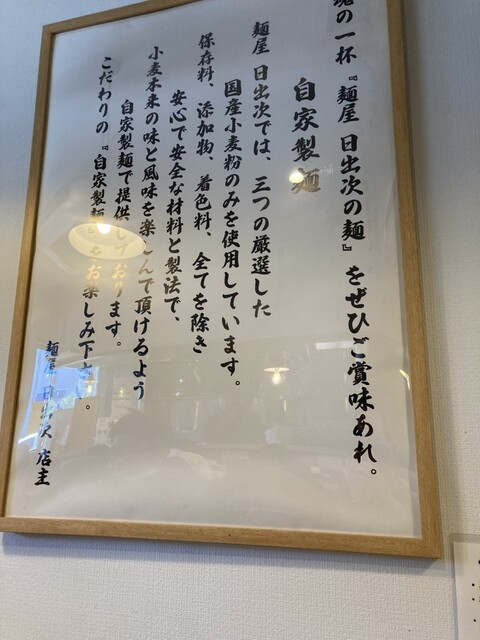 の一杯『麺屋 日出次の麺』をぜひご賞味あれ。
自家製麺
麺屋 日出次では、三つの厳選した
国産小麦粉のみを使用しています。
保存料、添加物、着色料、全てを除き
安心で安全な材料と製法で、
小麦本来の味と風味を楽しんで頂けるよう
自家製麺で提供しております。
こだわりの『自家製麺』をお楽しみ下さい。
麺屋 日出次 店主